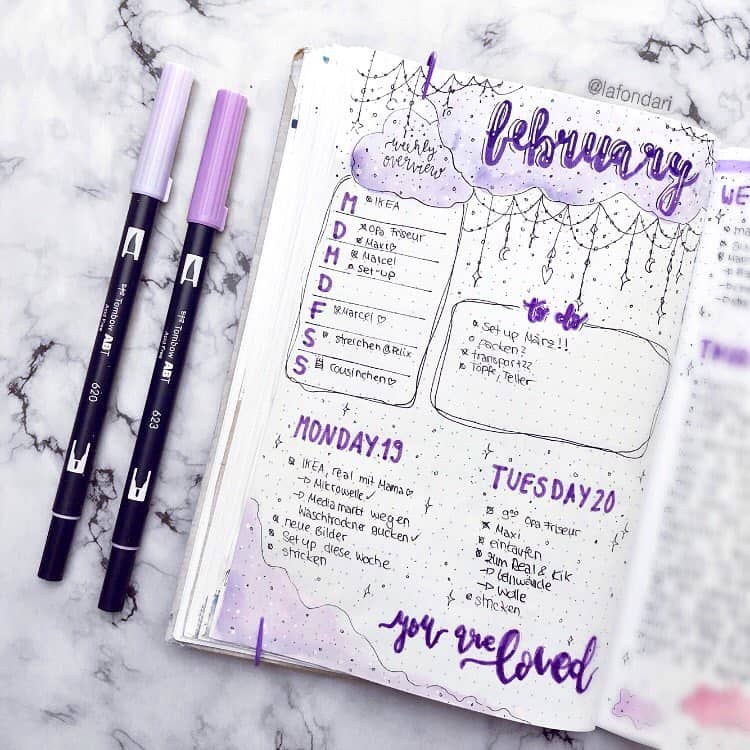 @lafondari
february
weekly
overview
M IKEA
D Opa Friseur
Maxi
M Marcel
D set-up
F Marcel ♡
S streichen @Felix
S cousinchen ♡
to do
set up März!!
packen?
transport??
Töpfe, Teller
MONDAY 19
IKEA, real mit Mama ♡
→ Mikrowelle ✓
→ Mediamarkt wegen
Waschtrockner gucken ✓
neue Bilder
Set up diese Woche
stricken
TUESDAY 20
9:00 Opa Friseur
Maxi
einkaufen
zum Real & Kik
→ Leinwände
→ Wolle
stricken
you are loved
WE
A
Tombow ABT
Acid Free
620
A
Tombow ABT
Acid Free
623